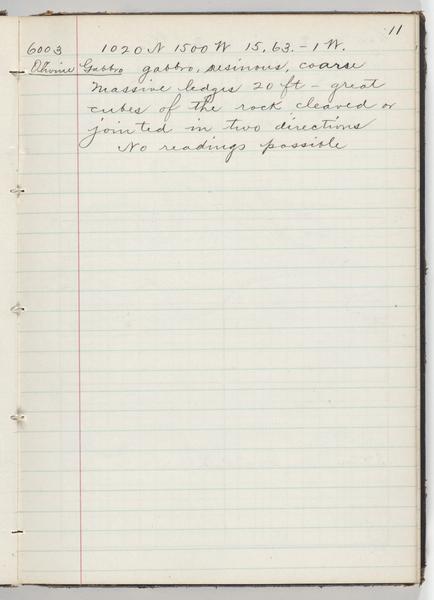 11
6003 1020 N 1500 W 15, 63. - 1 W.
Olivine Gabbro gabbro, resinous, coarse
Massive ledges 20 ft - great
cubes of the rock cleaved or
jointed in two directions
No readings possible